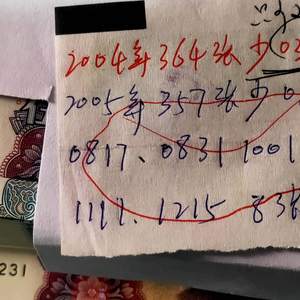 只
2004年364张少03
2005年357张少0
0817、0831 1001
1117、1215 83张
231